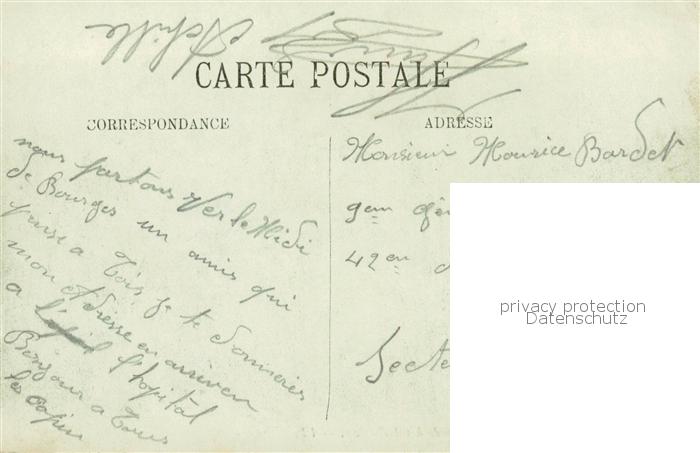 Achille
CARTE POSTALE
CORRESPONDANCE
ADRESSE
nous partons Ver le Midi
de Bourges un amis qui
pense a Tois je te donnerés
mon Adresse en arriven
a l'hopital
Bonjour a Tous
les copin
Monsieur Mourice Bardet
9em
42em
Secte
privacy protection
Datenschutz